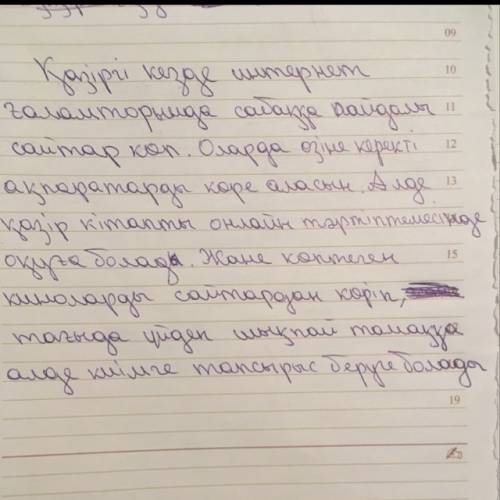 09
Қазіргі кезде интернет 10
ғаламторында сабаққа пайдалы 11
сайтар көп. Оларда өзіне керекті 12
ақпаратарды көре аласын. Алде 13
қазір кітапты онлайн тәртіптемесінде
оқуға болады. Және көптеген 15
киноларды сайтардан көріп,
тағыда үйден шықпай тамаққа
алде киімге тапсырыс беруге болады
19